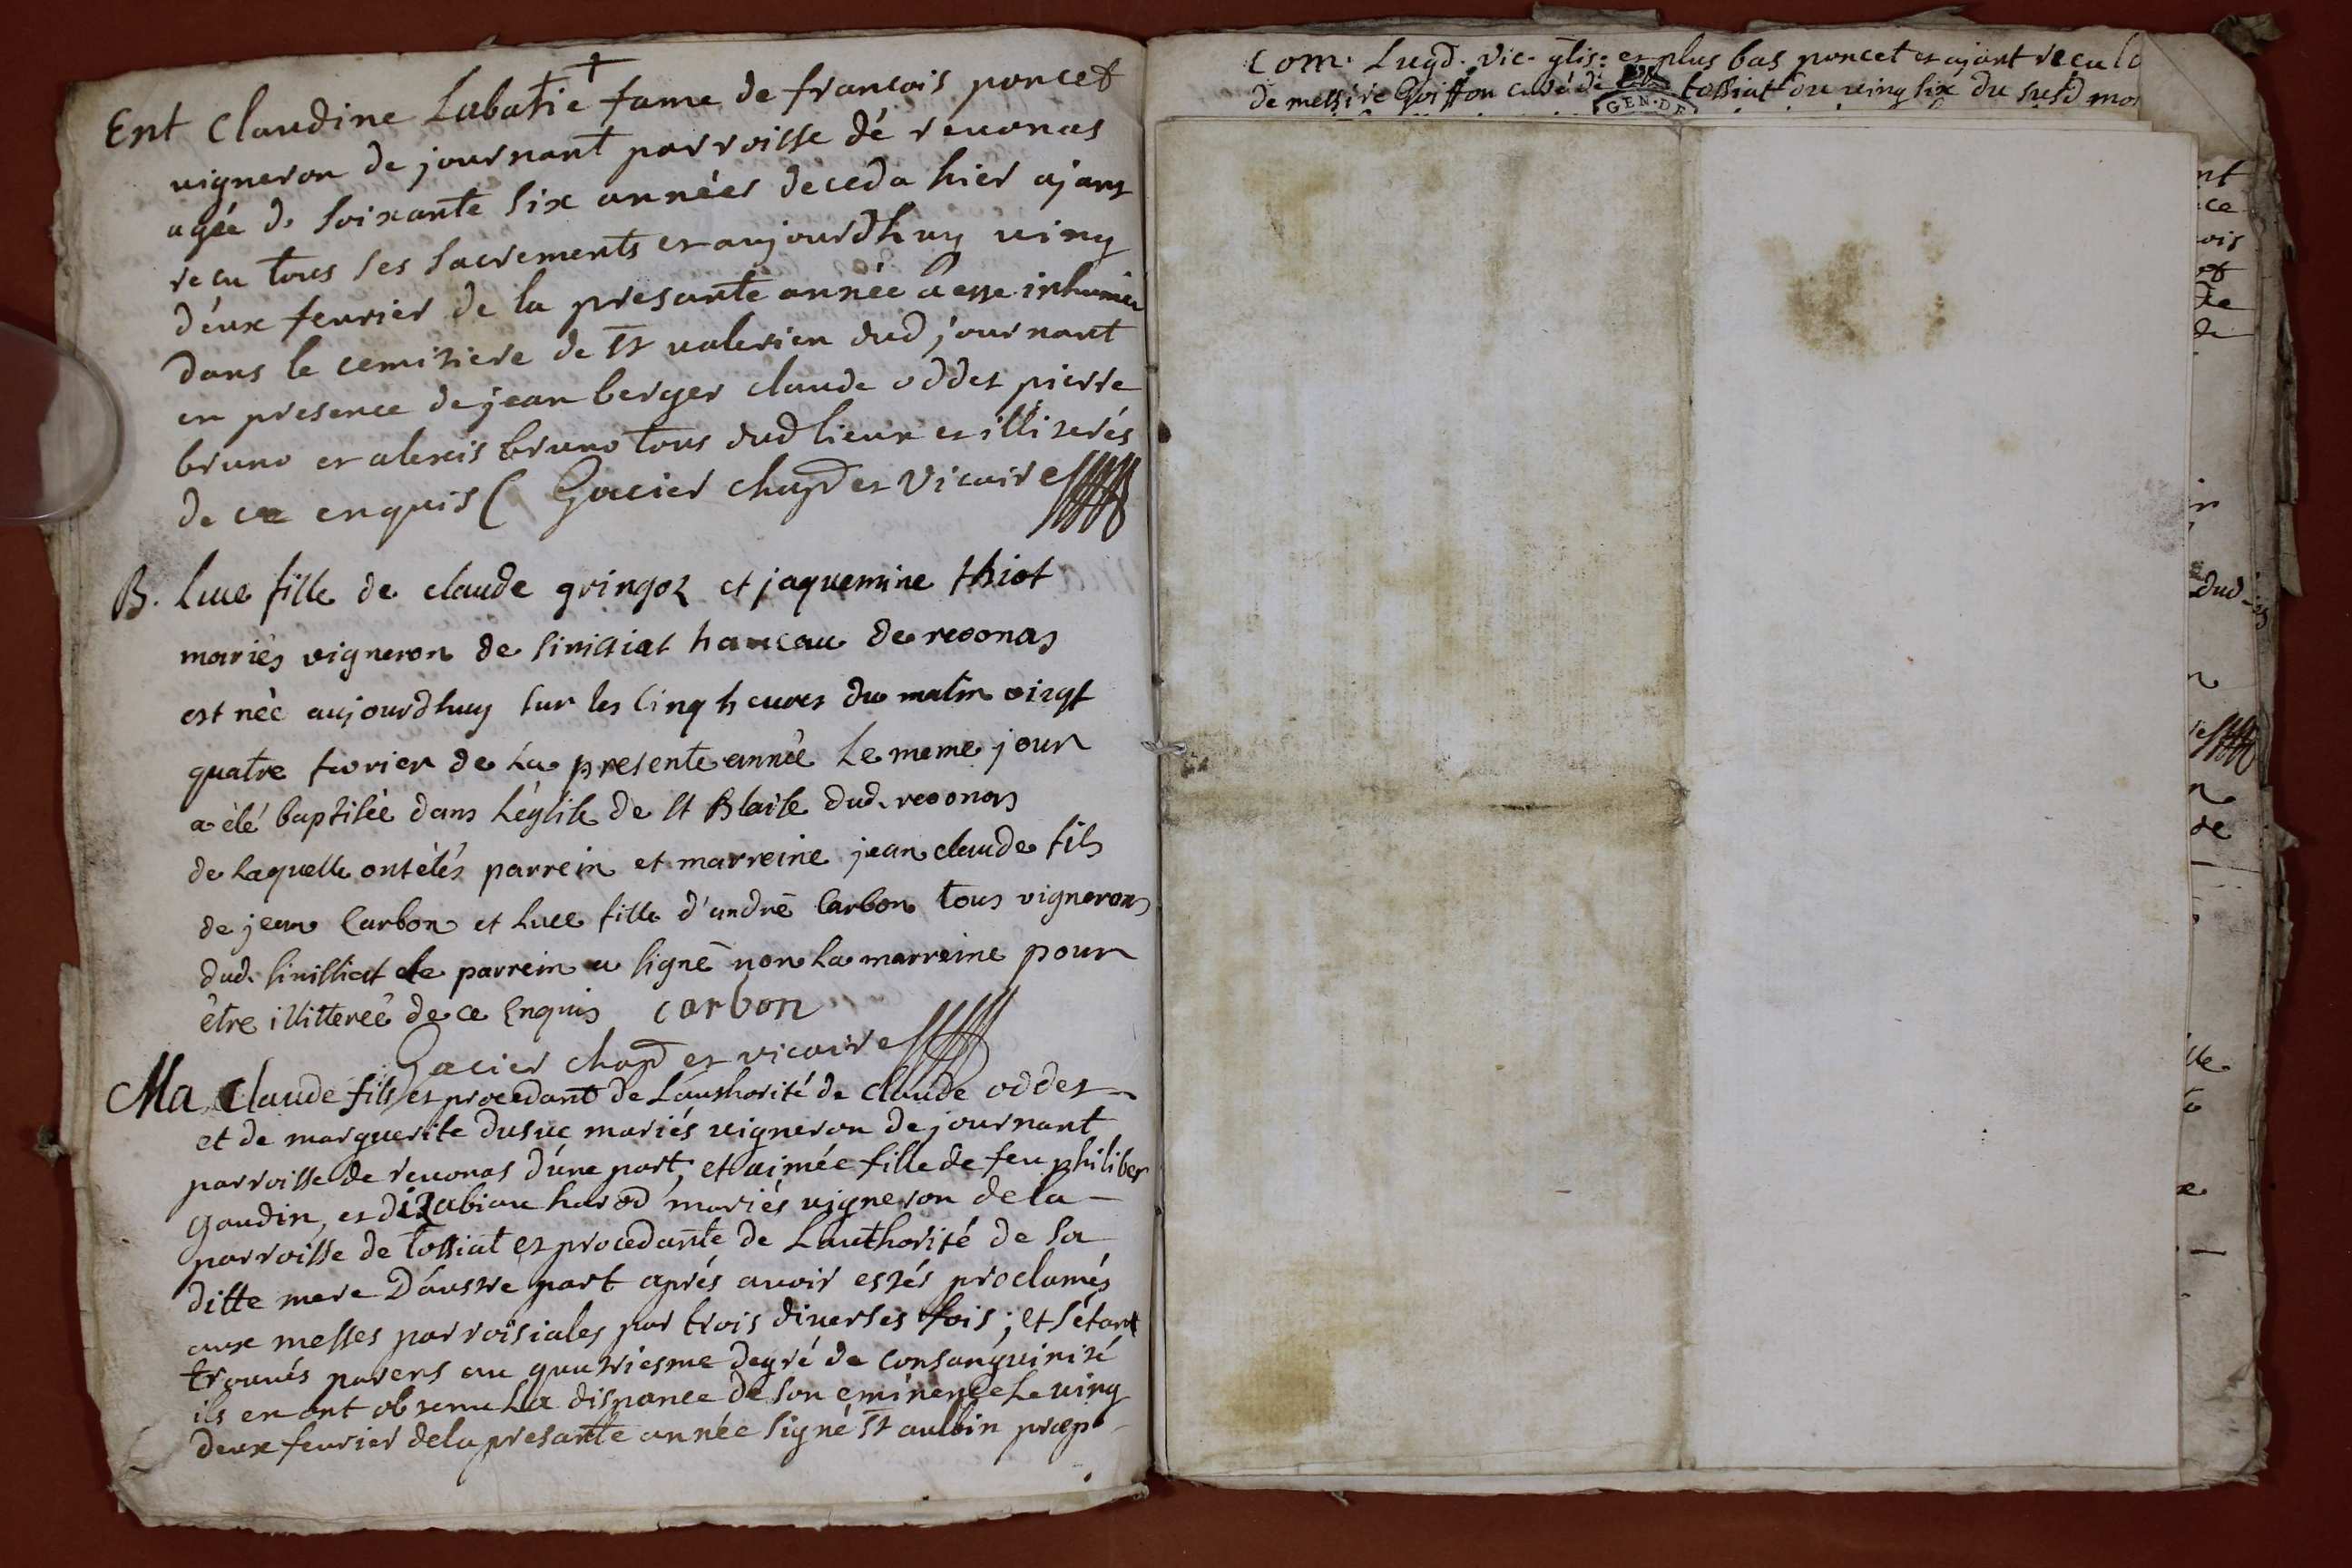 †
Ent Claudine Labatie fame de francois poncet
vigneron de journant parroisse dé revonas
agée d. soixante six années deceda hier ajant
recu tous ses sacrements et aujourdhuy ving
déux fevrier de la presante année a esse inhumée
dans le cemitiere de st valerien dud journant
en presence de jean berger claude oddet pierre
bruno et alexis bruno tous dud lieux et illiterés
de ce enquis Gacier chapd et vicaire
B. Luce fille de claude gringoz et jaquemine thiot
mariés vigneron de sinissiat hameau de revonas
est née aujourdhuy sur les cinq heures du matin vingt
quatre fevrier de la presente année le meme jour
a été baptisée dans l'église de st Blaise dud. revonas
de laquelle ont étés parrein et marreine jean claude fils
de jean Carbon et luce fille d'andré Carbon tous vignerons
dud. sinissiat le parrein a signé non la marreine pour
être illitterée de ce Enquis carbon
Gacier chapd et vicaire
Ma Claude fils et procedant de Lauthorité de claude oddet
et de marguerite dusuc mariés vigneron de journant
parroisse de revonas d'une part; et aimée fille de feu philiber
gaudin, et dizabiau harod mariés vigneron de la
parroisse de tossiat et procedante de Lauthorité de sa
ditte mere D'austre part aprés avoir estés proclamés
aux messes parroisiales par trois diverses fois; et s'étant
trouvés parens au quatriesme degré de consanguinité
ils en ont obtenu la dispance de son eminence Le ving
deux fevrier de la presante année signé st aulbin præp
Com. Lugd. vic. glis: et plus bas poncet et ajant recu
de messire Goiffon curé de tossiat du ving six du susd mo
GEN. DE
nt
ce
ois
et
de
dud
re